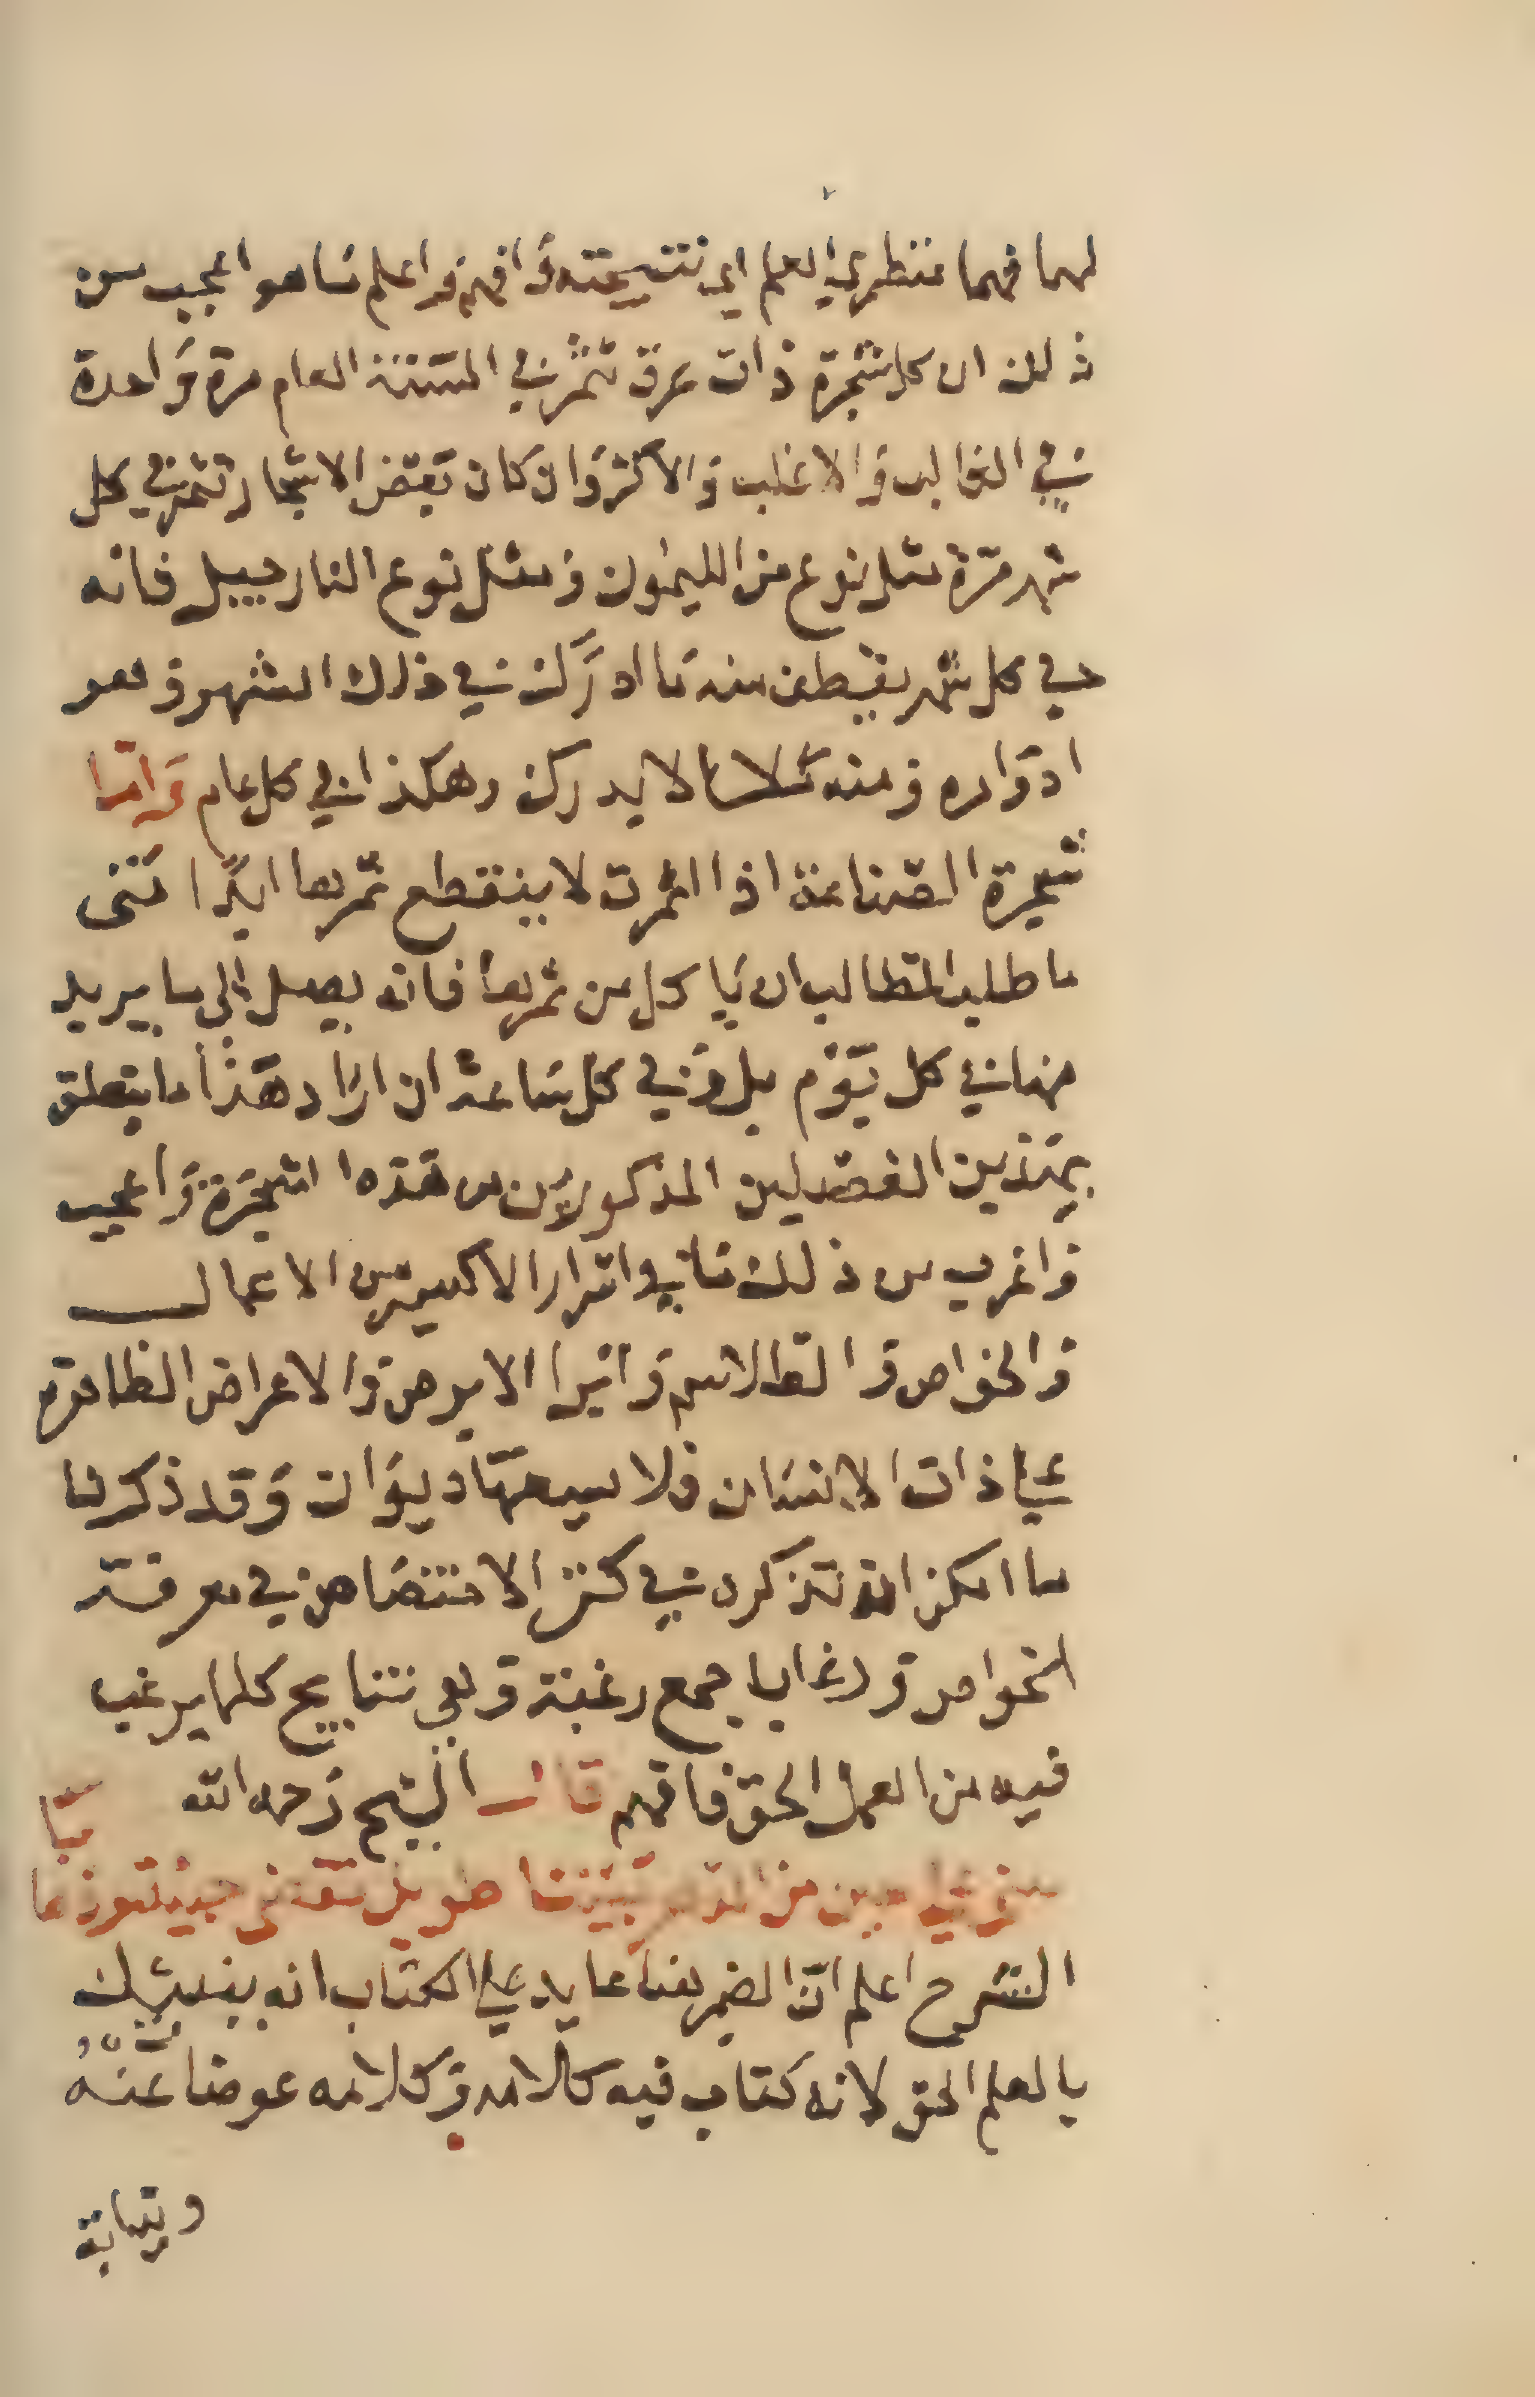 لهما فهما منتظري العلم اي نتيجته وافهم واعلم ما هو اعجب من
ذلك ان كل شجرة ذات عرق تثمر في السنة العام مرة واحدة
في الغالب والاغلب والاكثر وان كان بعض الاشجار تثمر في كل
شهر مرة مثل نوع من الليمون ومثل نوع النارجيل فانه
في كل شهر يقطف منه ما ادرك في ذلك الشهر وهو
ادواره ومنه لا يدرك وهكذا في كل عام واما
شجرة الصناعة اذا اثمرت لا ينقطع ثمرها ابدا متى
ما طلب الطالب ان ياكل من ثمرها فانه يصل الى ما يريد
منها في كل يوم بل وفي كل ساعة ان اراد هذا ما يتعلق
بهذين الفصلين المذكورين من هذه الشجرة واعجب
واغرب من ذلك ما في اسرار الاكسير من الاعمال
والخواص والطلاسم وابرا الابرص والاعراض الظاهرة
على ذات الانسان فلا يسعها ديوان وقد ذكرنا
ما امكن ان نذكره في كنز الاختصاص في معرفة
الخواص ورغايبا جمع رغبة وهي نتايج كلما يرغب
فيه من العمل الحق فافهم قال الشيخ رحمه الله
من بيننا طويل
الشرح اعلم ان الضمير هنا عايد على الكتاب انه ينبيك
بالعلم الحق لانه كتاب فيه كلامه وكلامه عوضا عنه
ونيابة